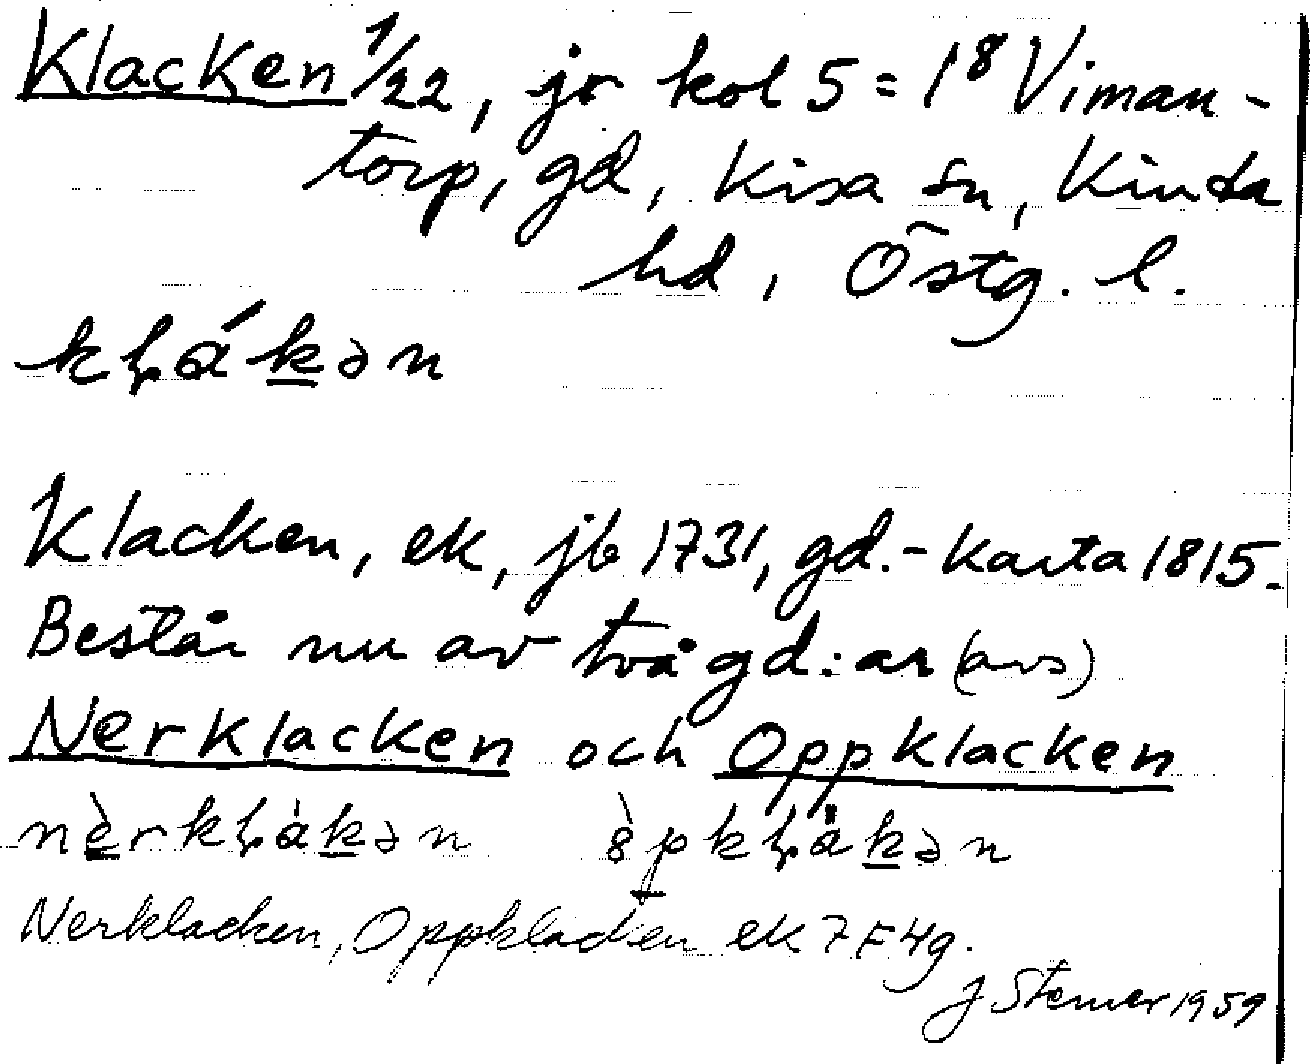 Klacken 1/22, jr kol 5 = 1⁸ Viman-
torp, gd, Kisa sn, Kinda
hd, Östg. l.
Klacken, ek, jb 1731, gd.- Karta 1815.
Består nu av två gd:ar (avs)
Nerklacken och Oppklacken
Nerklacken, Oppklacken ek 7F4g.
J Sterner 1959